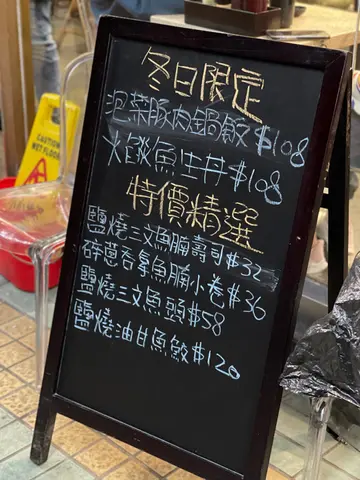 冬日限定
泡菜豚肉鍋飯 $108
火燄魚生丼 $108
特價精選
鹽燒三文魚腩壽司 $32
碎蔥吞拿魚腩小卷 $36
鹽燒三文魚頭 $58
鹽燒油甘魚鮫 $120
CAUTION
WET FLOOR